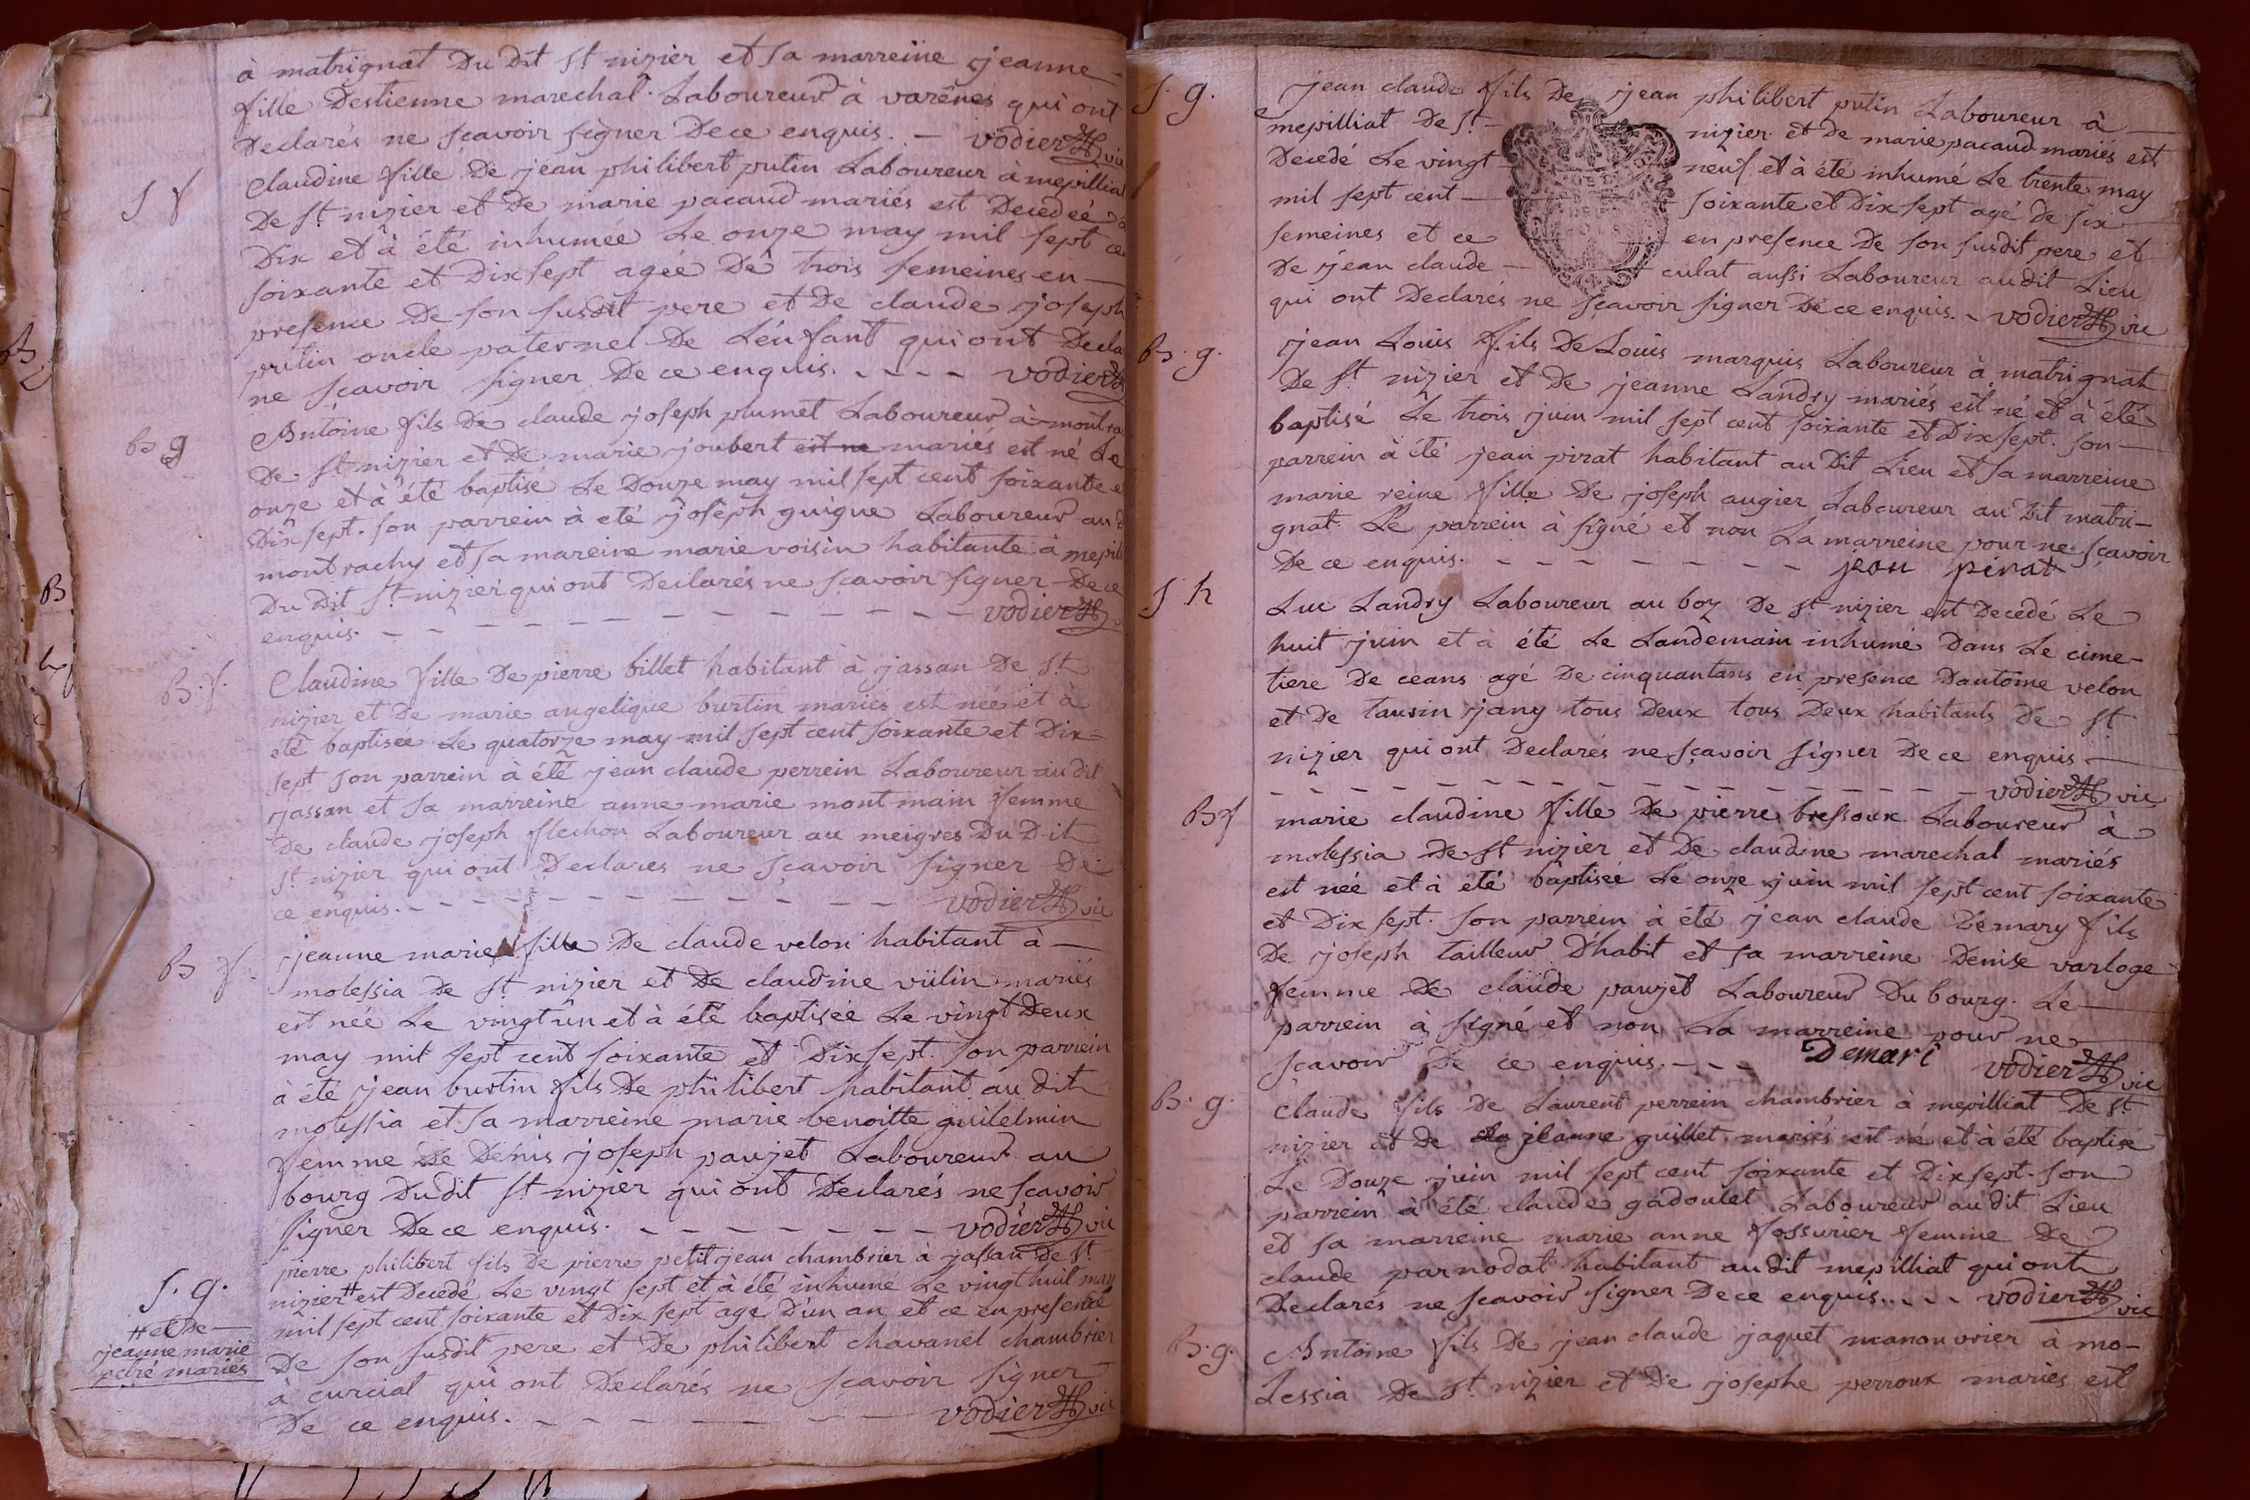 à matrignat Du Dit St nizier et sa marreine jeanne
fille Destienne marechal Laboureur à varênes qui ont
Declarés ne scavoir signer De ce enquis. — vodier vic
S f
Claudine fille De jean philibert putin Laboureur à mepillia
De St nizier et De marie pacaud mariés est Decedeé
Dix et à été inhumée Le onze may mil sept ce
soixante et Dixsept ageé De trois semeines en —
presence De son susdit pere et De claude joseph
putin oncle paternel De Lénfant qui ont Decla
ne scavoir signer De ce enquis. - - - - vodier
B g
Antoine fils De claude joseph plumet Laboureur à montra
De St nizier et De marie joubert est ne mariés est né Le
onze et à été baptisé Le Douze may mil sept cent soixante e
Dix sept. son parrein à eté joseph guigue Laboureur au d
montrachy et sa mareine marie voisin habitante à mepill
Du Dit St nizier qui ont Declarés ne scavoir signer De ce
enquis. - - - - - - - - - - vodier
B. f.
Claudine fille De pierre billet habitant à jassan De St
nizier et De marie angelique burtin mariés est née et à
eté baptisée Le quatorze may mil sept cent soixante et Dix=
sept son parrein à été jean claude perrein Laboureur au dit
jassan et sa marreine anne marie montmain femme
De claude joseph flechon Laboureur au meigres Du Dit
St nizier qui ont Declares ne scavoir signer De
ce enquis. - - - - - - - - - - vodier vic
B f.
jeanne marie fille De claude velon habitant à —
molessia De St nizier et De claudine vülin mariés
est née Le vingt un et à été baptisée Le vingt Deux
may mil sept cent soixante et Dixsept. son parrein
à été jean burtin fils De philibert habitant au dit
molessia et sa marreine marie benoitte guilelmin
femme De Dénis joseph paujet Laboureur au
bourg Dudit St nizier qui ont Declarés ne scavoir
signer De ce enquis. - - - - - - - vodier vic
S. g.
pierre philibert fils De pierre petitjean chambrier à jassan De St
nizier # est Decedé Le vingt sept et à été inhumé Le vingt huit may
# et De —
jeanne marie
petré mariés
mil sept cent soixante et Dix sept age D'un an et ce en presence
De son susdit pere et De philibert chavanel chambrier
à curcial qui ont Declarés ne scavoir signer
De ce enquis. - - - - - - - - vodier vic
S. g.
jean claude fils De jean philibert putin Laboureur à
mepilliat De St — nizier et de marie pacaud mariés est
Décedé Le vingt neuf et à été inhumé Le trente may
mil sept cent — soixante et Dix sept agé de six
semeines et ce — en presence De son susdit pere et
De jean claude — culat aussi Laboureur au dit Lieu
qui ont Declarés ne sçavoir signer De ce enquis. - vodier vic
B. g.
jean Louis fils De Louis marquis Laboureur à matrignat
De St nizier et De jeanne Landry mariés est né et à été
baptisé Le trois juin mil sept cent soixante et Dixsept. son —
parrein à été jean pirat habitant au Dit Lieu et sa marreine
marie reine fille De joseph augier Laboureur au Dit matri-
gnat. Le parrein à signé et non La marreine pour ne sçavoir
De ce enquis. - - - - - - - jean pirat
S h
Luc Landry Laboureur au boz De St nizier est Decedé Le
huit juin et à été Le Landemain inhumé Dans Le cime-
tiere De céans agé De cinquantans en presence Dantoine velon
et De tausin jany tous Deux tous Deux habitants De St
nizier qui ont Declarés ne sçavoir signer De ce enquis —
- - - - - - - - - - - - - - - - vodier vic
B f
marie claudine fille De pierre bressoux Laboureur à
molessia De St nizier et De claudine marechal mariés
est née et à été baptisée Le onze juin mil sept cent soixante
et Dix sept. son parrein à été jean claude Démary fils
De joseph tailleur D'habit et sa marreine Denise varloge
femme De claude paujet Laboureur Du bourg. Le —
parrein à signé et non La marreine pour ne
scavoir De ce enquis. - - - Demari vodier vic
B. g.
Claude fils De Laurent perrein chambrier à mepilliat De St
nizier et De jeanne guillet mariés est né et à été baptisé
Le Douze juin mil sept cent soixante et Dixsept. son
parrein à été claude gadoulet Laboureur au dit Lieu
et sa marreine marie anne fossurier femme De
claude parnodat habitant au dit mepilliat qui ont
Declarés ne scavoir signer De ce enquis. - - - vodier vic
B. g.
Antoine fils De jean claude jaquet manouvrier à mo-
Lessia De St nizier et De josephe perroux mariés est